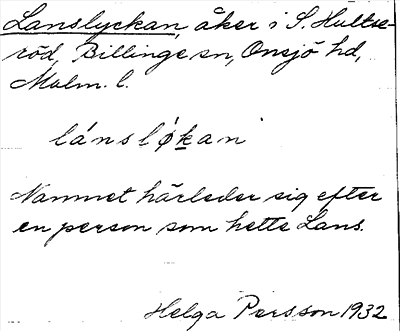 Lanslyckan, åker i S. Hultse-
röd, Billinge sn, Onsjö hd,
Malm. l.
lánslø̀kan
Namnet härleder sig efter
en person som hette Lans.
Helga Persson 1932